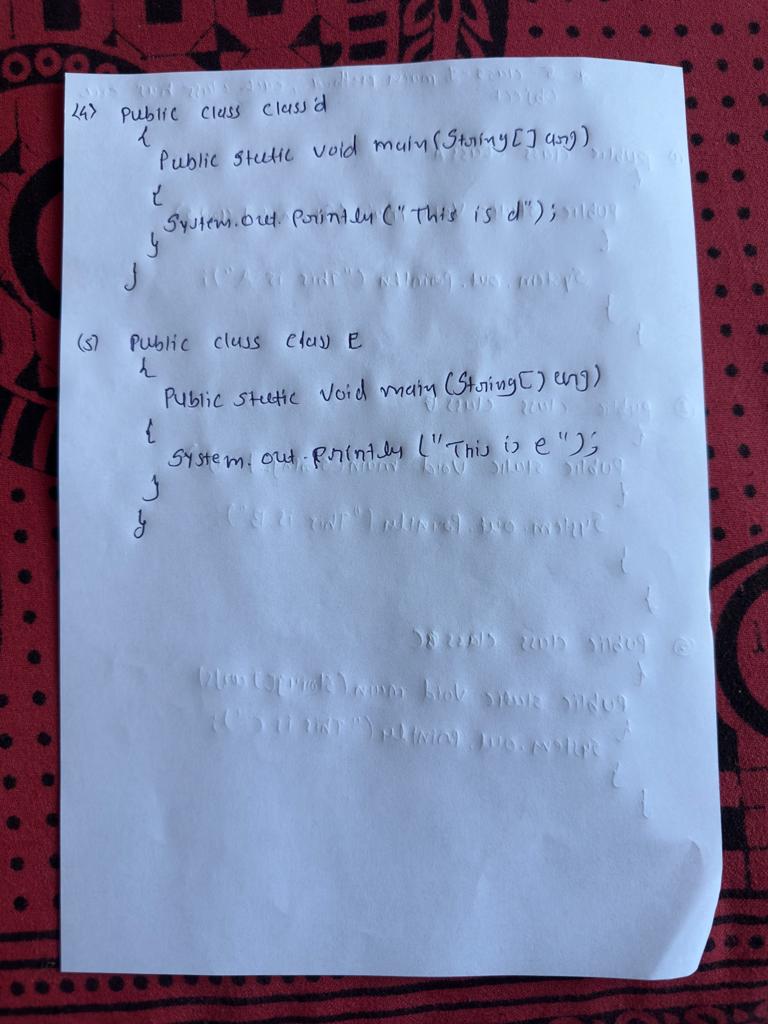 (4) Public class class d
{
Public static void main (String[] arg)
{
System.out.println ("This is d");
}
}
(5) Public class class E
{
Public static void main (String[] arg)
{
System.out.println ("This is e");
}
}